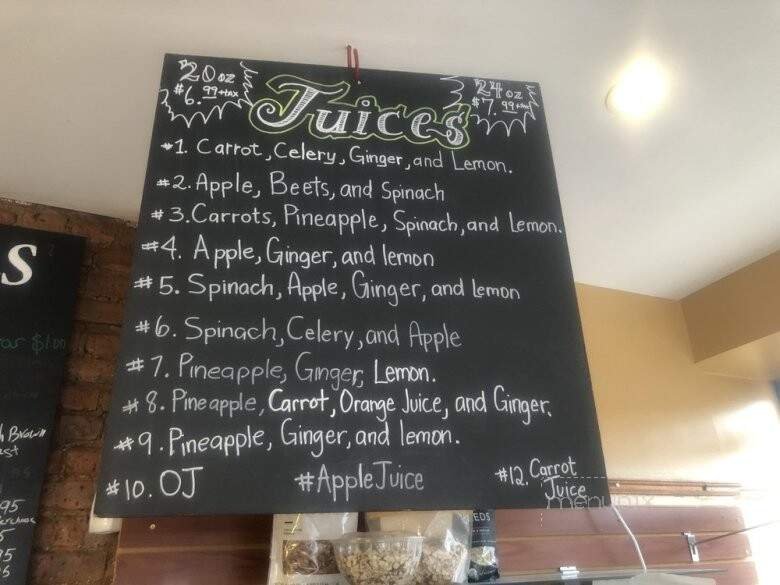 20 oz
$6.99+tax
Juices
24 oz
$7.99+tax
#1. Carrot, Celery, Ginger, and Lemon.
#2. Apple, Beets, and Spinach
#3. Carrots, Pineapple, Spinach, and Lemon.
#4. Apple, Ginger, and lemon
#5. Spinach, Apple, Ginger, and Lemon
#6. Spinach, Celery, and Apple
#7. Pineapple, Ginger, Lemon.
#8. Pineapple, Carrot, Orange Juice, and Ginger.
#9. Pineapple, Ginger, and lemon.
#10. OJ
#Apple Juice
#12. Carrot
Juice
menupix
S
$1.00
Brown
95
EDS